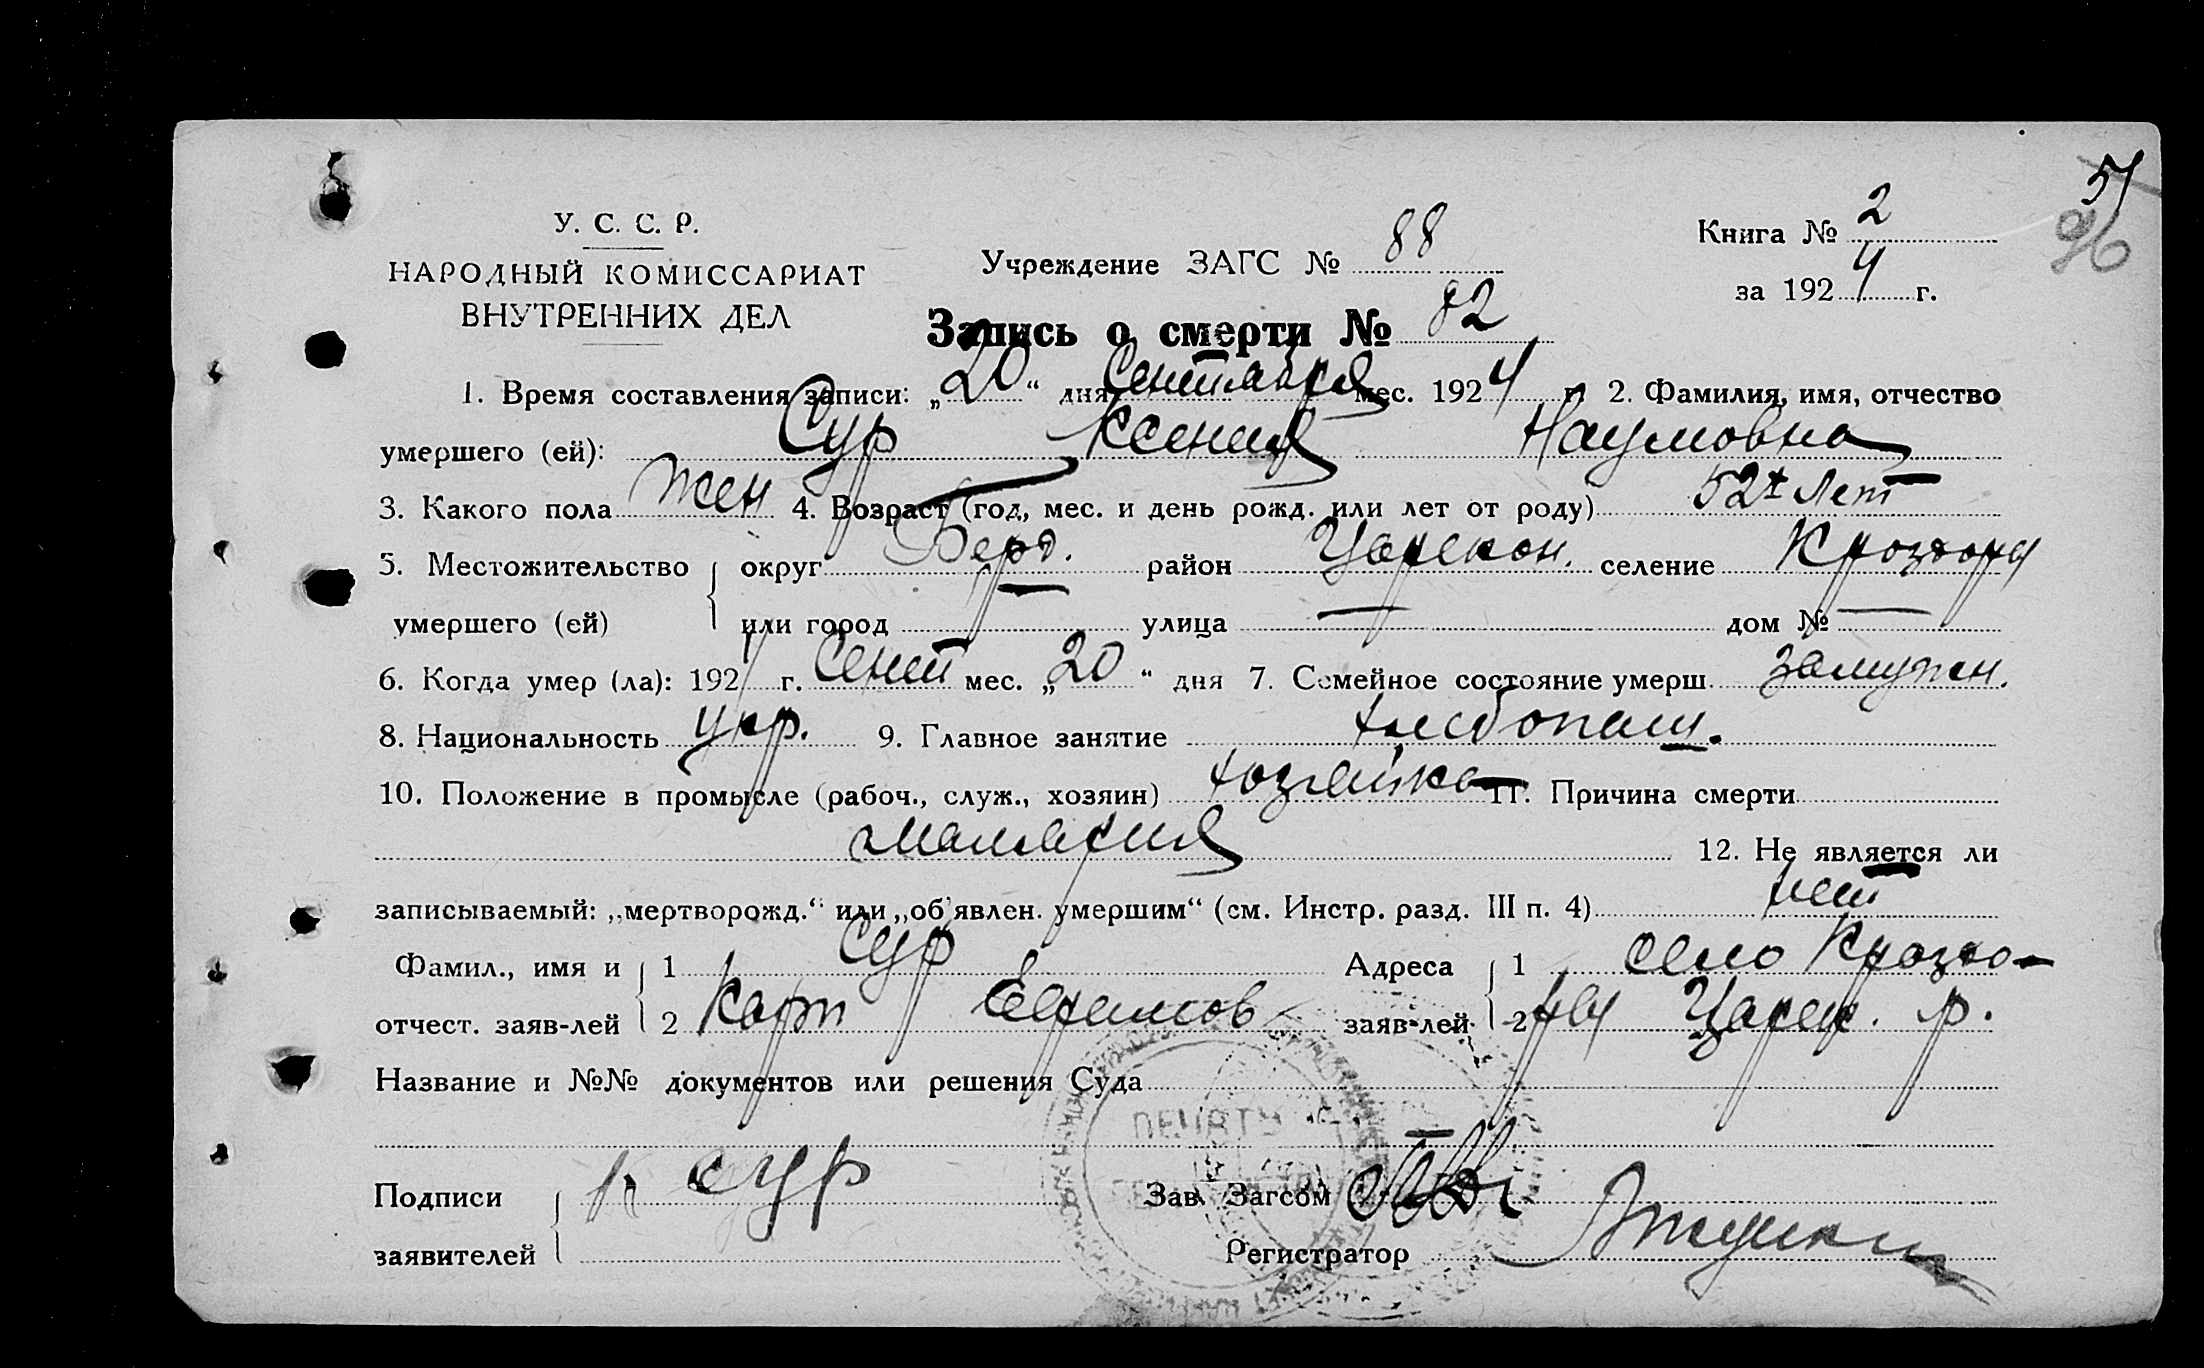 51
96
У. С. С. Р.
НАРОДНЫЙ КОМИССАРИАТ
ВНУТРЕННИХ ДЕЛ
Учреждение ЗАГС № 88
Книга № 2
за 1924 г.
Запись о смерти № 82
1. Время составления записи: „20“ дня Сентября мес. 1924 г. 2. Фамилия, имя, отчество
умершего (ей): Сур Ксения Наумовна
3. Какого пола жен 4. Возраст (год, мес. и день рожд. или лет от роду) 52 лет
5. Местожительство округ Берд. район Царекон. селение
умершего (ей) или город улица — дом № —
6. Когда умер (ла): 1924 г. Сент мес. „20“ дня 7. Семейное состояние умерш. замужн.
8. Национальность укр. 9. Главное занятие хлебопаш.
10. Положение в промысле (рабоч., служ., хозяин) хозяйка 11. Причина смерти
малярия 12. Не является ли
записываемый: „мертворожд.“ или „об'явлен. умершим“ (см. Инстр. разд. III п. 4) нет
Фамил., имя и 1 Сур Адреса 1 село
отчест. заяв-лей 2 Карп Ефимов заяв-лей 2 Царек. р.
Название и №№ документов или решения Суда
Подписи К Сур Зав. Загсом
заявителей Регистратор